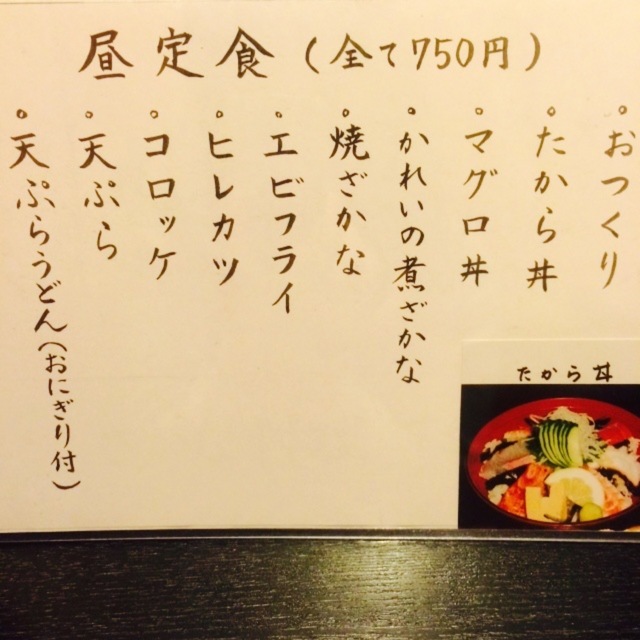 昼定食(全て750円)
。おつくり
。たから丼
。マグロ丼
。かれいの煮ざかな
。焼ざかな
。エビフライ
。ヒレカツ
。コロッケ
。天ぷら
。天ぷらうどん(おにぎり付)
たから丼